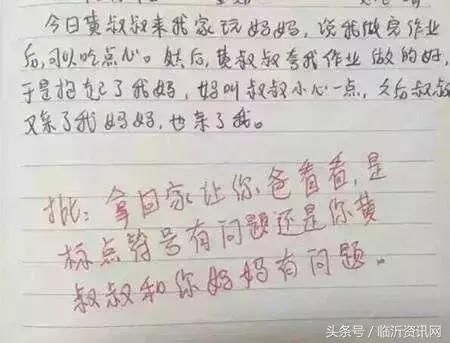 今日黄叔叔来我家玩妈妈，说我做完作业
后，可以吃点心。然后，黄叔叔夸我作业做的好，
于是抱起了我妈，妈叫叔叔小心一点，之后叔叔
又亲了我妈妈，也亲了我。
批：拿回家让你爸看看，是
标点符号有问题还是你黄
叔叔和你妈妈有问题。
头条号/临沂资讯网